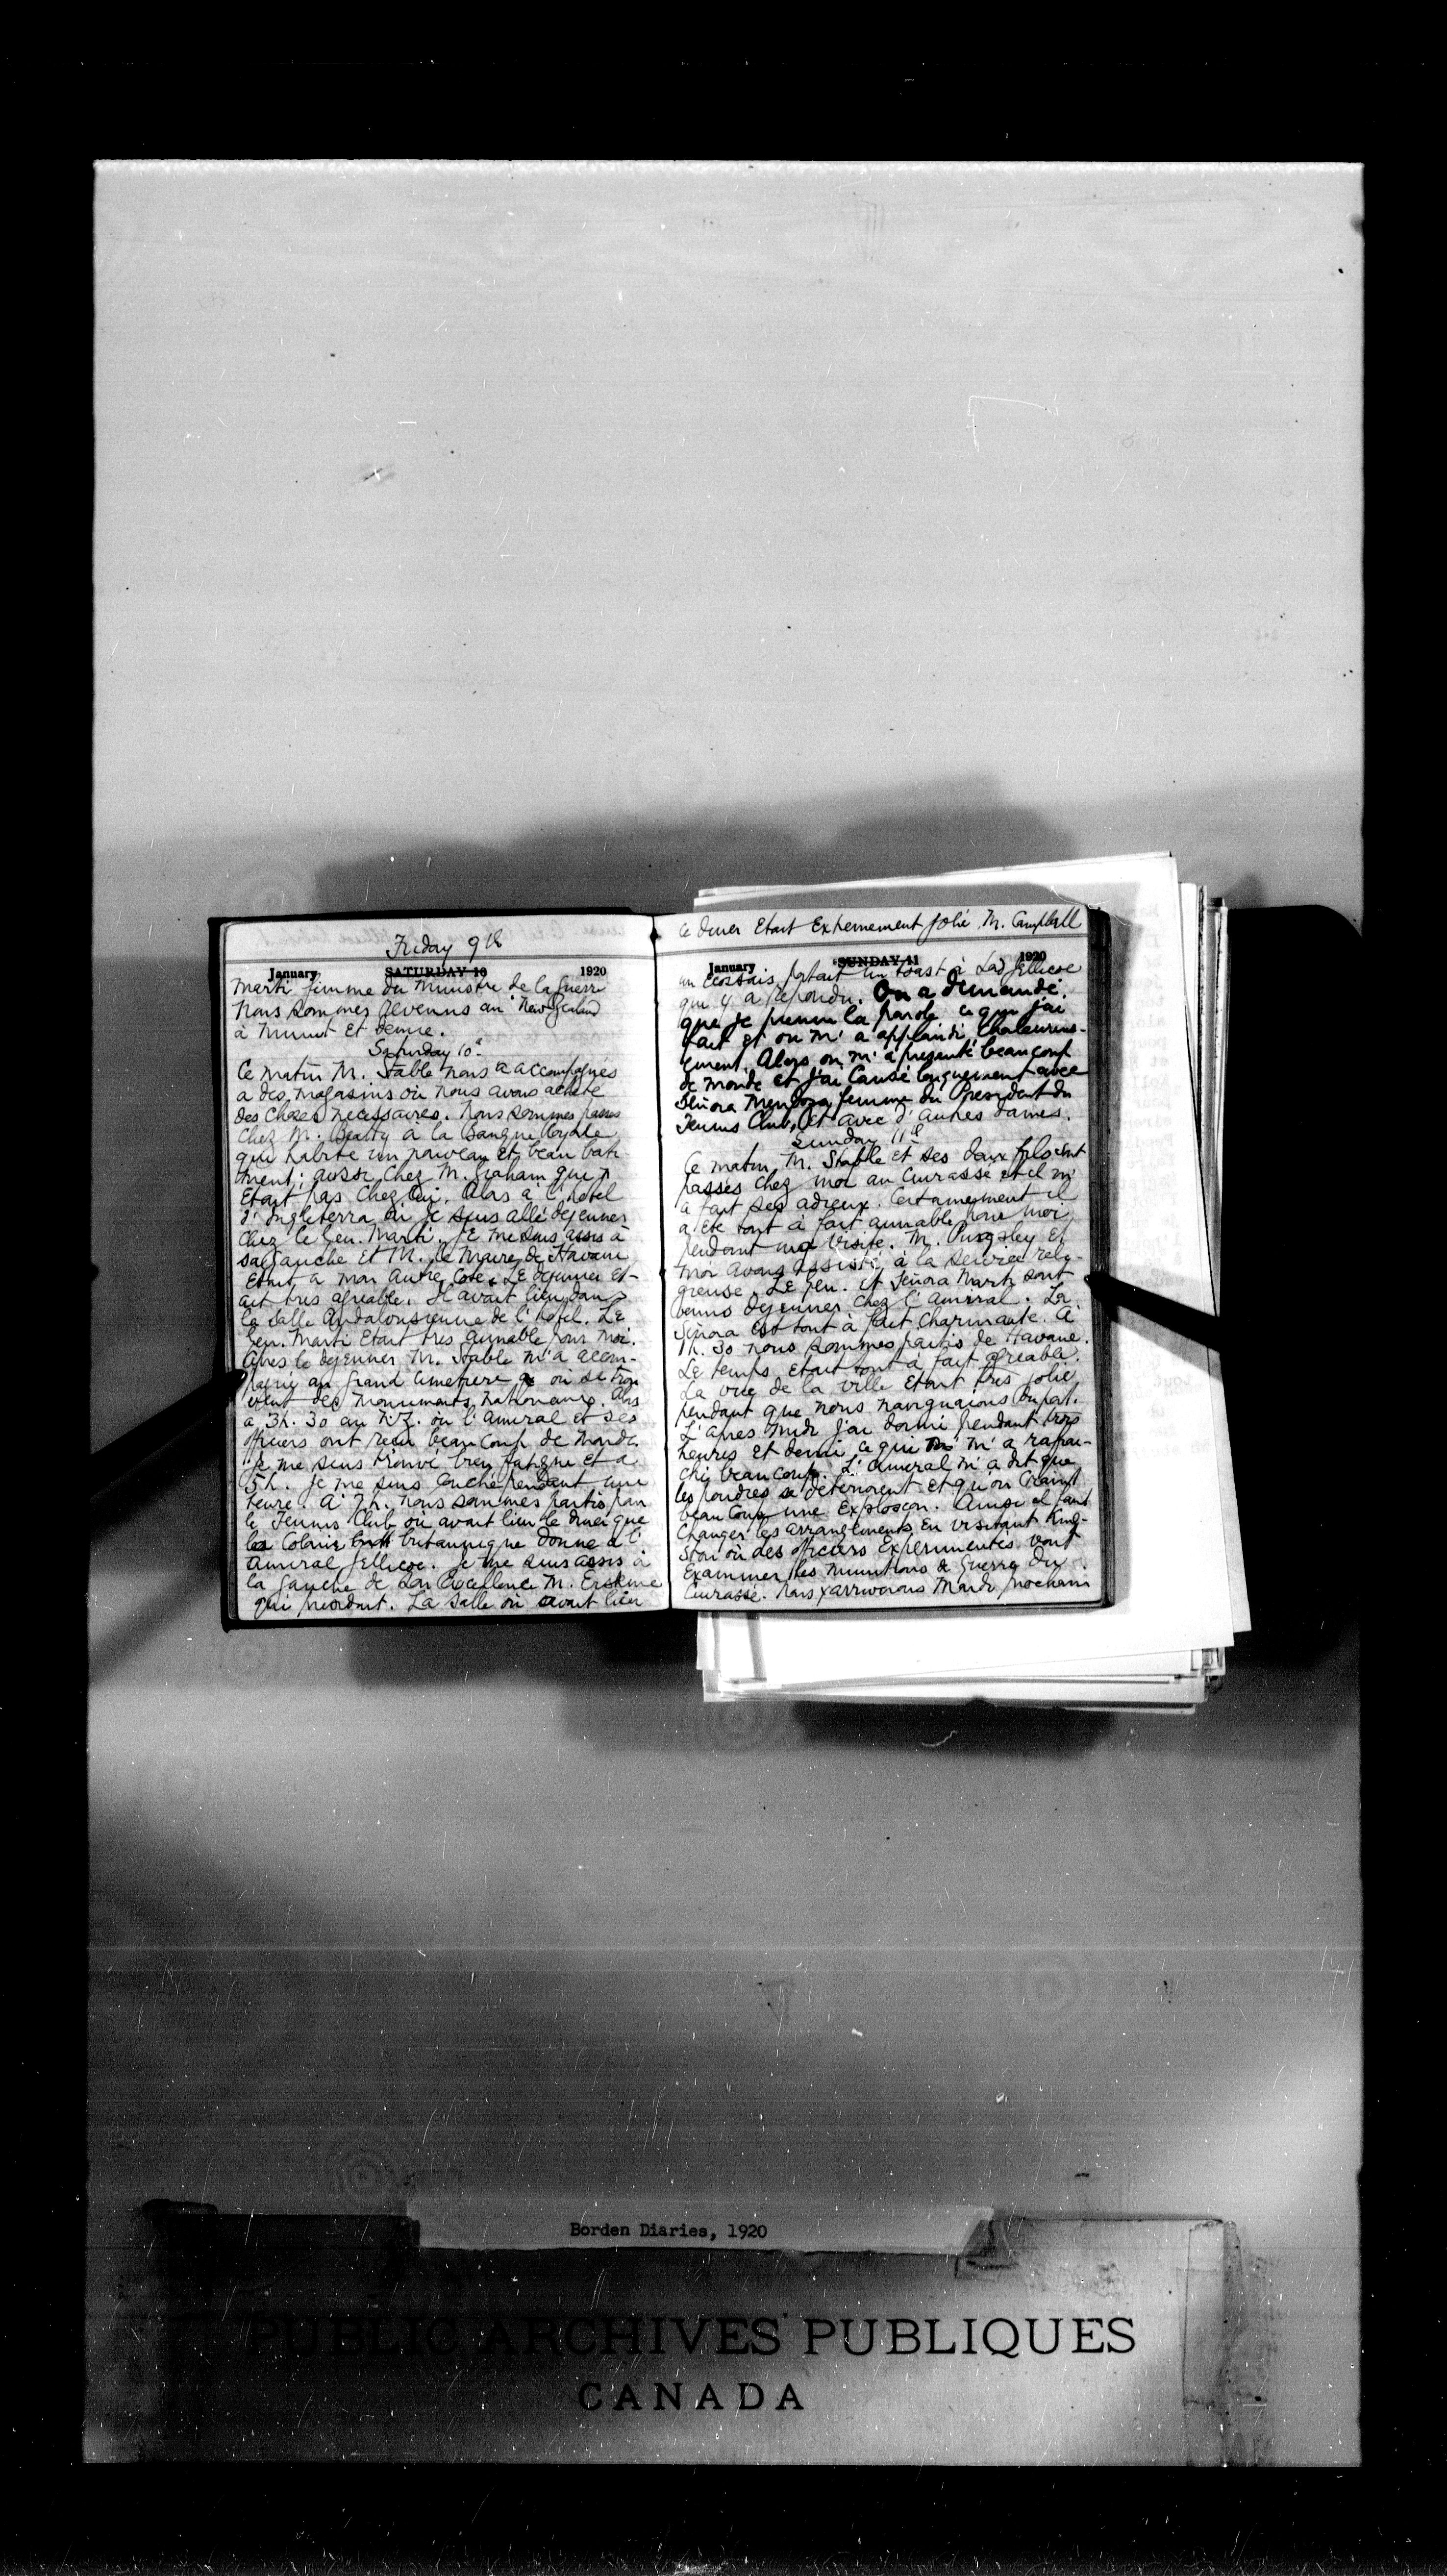 Friday 9th
January SATURDAY 10 1920
Marti femme du Ministre de la Guerre
Nous sommes revenus au "New Zealand
à Minuit et demie.
Saturday 10th
Ce matin M. Stable nous a accompagnés
a des magasins où nous avons acheté
des choses necessaires. Nous sommes passes
chez M. Beatty à la Banque Royale
qui habite un nouveau et beau bati
ment; aussi chez M. Graham qui n'
etait pas chez lui. Alors à l'hotel
d'Ingleterra où je suis allé dejeuner
chez le Gen. Marti. Je me suis assis à
sa gauche et M. le Maire de Havane
etait a mon autre coté. Le dejeuner et-
ait tres agreable. Il avait lieu dans
la salle Andalousienne de l'hotel. Le
Gen. Marti etait tres aimable pour moi.
Apres le dejeuner M. Stable m'a accom-
pagné au grand cimetiere où se trou
vent des monuments nationaux. Alors
a 3h. 30 au N.Z. où l'amiral et ses
officiers ont reçu beaucoup de monde.
Je me suis trouvé bien fatigué et a
5h. je me suis couché pendant une
heure. A 7h. nous sommes partis pour
le Tennis Club où avait lieu le diner que
la Colonie britannique donne à l'
amiral Jellicoe. Je me suis assis à
la gauche de Son Excellence M. Erskine
qui presidait. La salle où avait lieu
le diner etait extremement jolie. M. Campbell
January SUNDAY 11 1920
un Ecossais portait un toast à Lord Jellicoe
qui y a repondu. On a demandé
que je prenne la parole ce que j'ai
fait et on m'a applaudi chaleureus-
ement. Alors on m'a presenté beaucoup
de monde et j'ai causé longuement avec
Señora Mendoza femme du President du
Tennis Club, et avec d'autres dames.
Sunday 11th
Ce matin M. Stable et ses deux fils sont
passés chez moi au cuirassé et il m'
a fait ses adieux. Certainement il
a été tout à fait aimable pour moi
pendant ma visite. M. Pugsley et
moi avons assisté à la service reli-
gieuse. Le Gen. et Señora Marti sont
venus dejeuner chez l'amiral. La
Señora est tout à fait charmante. A
1h. 30 nous sommes partis de Havane.
Le temps etait tout à fait agreable.
La vue de la ville etait tres jolie
pendant que nous naviguions du port.
L'apres midi j'ai dormi pendant trois
heures et demi ce qui m'a rafrai-
chi beaucoup. L'amiral m'a dit que
les poudres se deteriorent et qu'on craint
beaucoup une explosion. Ainsi il faut
changer les arrangements en visitant King-
ston où des officiers experimentés vont
examiner les munitions de guerre du
cuirassé. Nous y arriverons Mardi prochain
Borden Diaries, 1920
PUBLIC ARCHIVES PUBLIQUES
CANADA